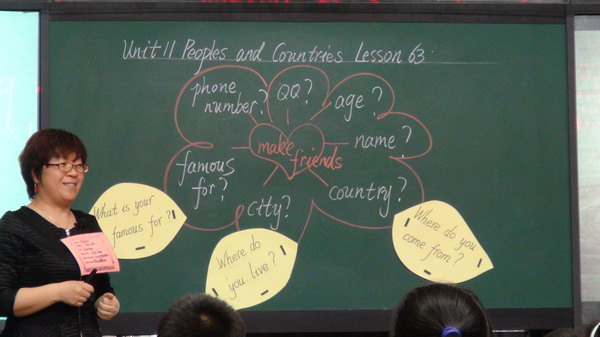 Unit 11 Peoples and Countries Lesson 63.
phone
number?
QQ?
age?
name?
country?
city?
famous
for?
make
friends
What is your
famous for?
Where do
you live?
Where do you
come from?